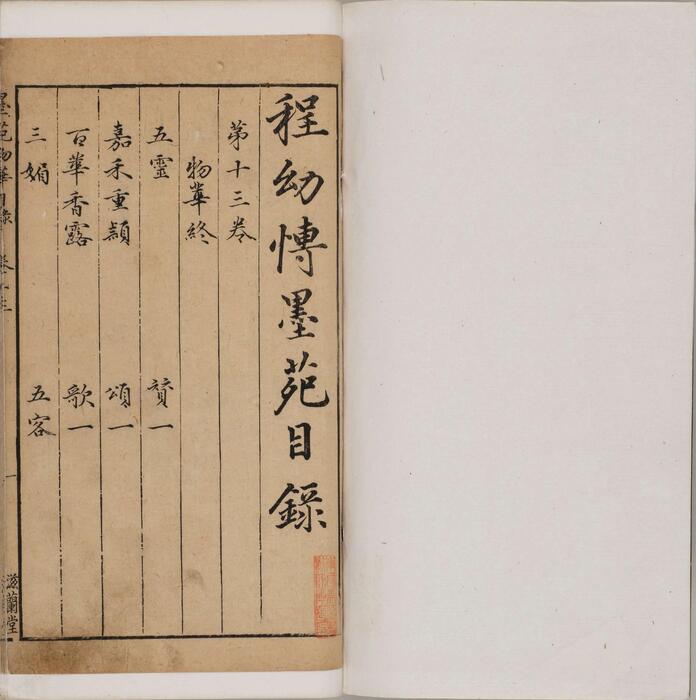 程幼博墨苑目錄
第十三卷
物華終
五靈 贊一
嘉禾重穎 頌一
百華香露 歌一
三娟 五客
墨苑物華目錄 卷十三 一 滋蘭堂